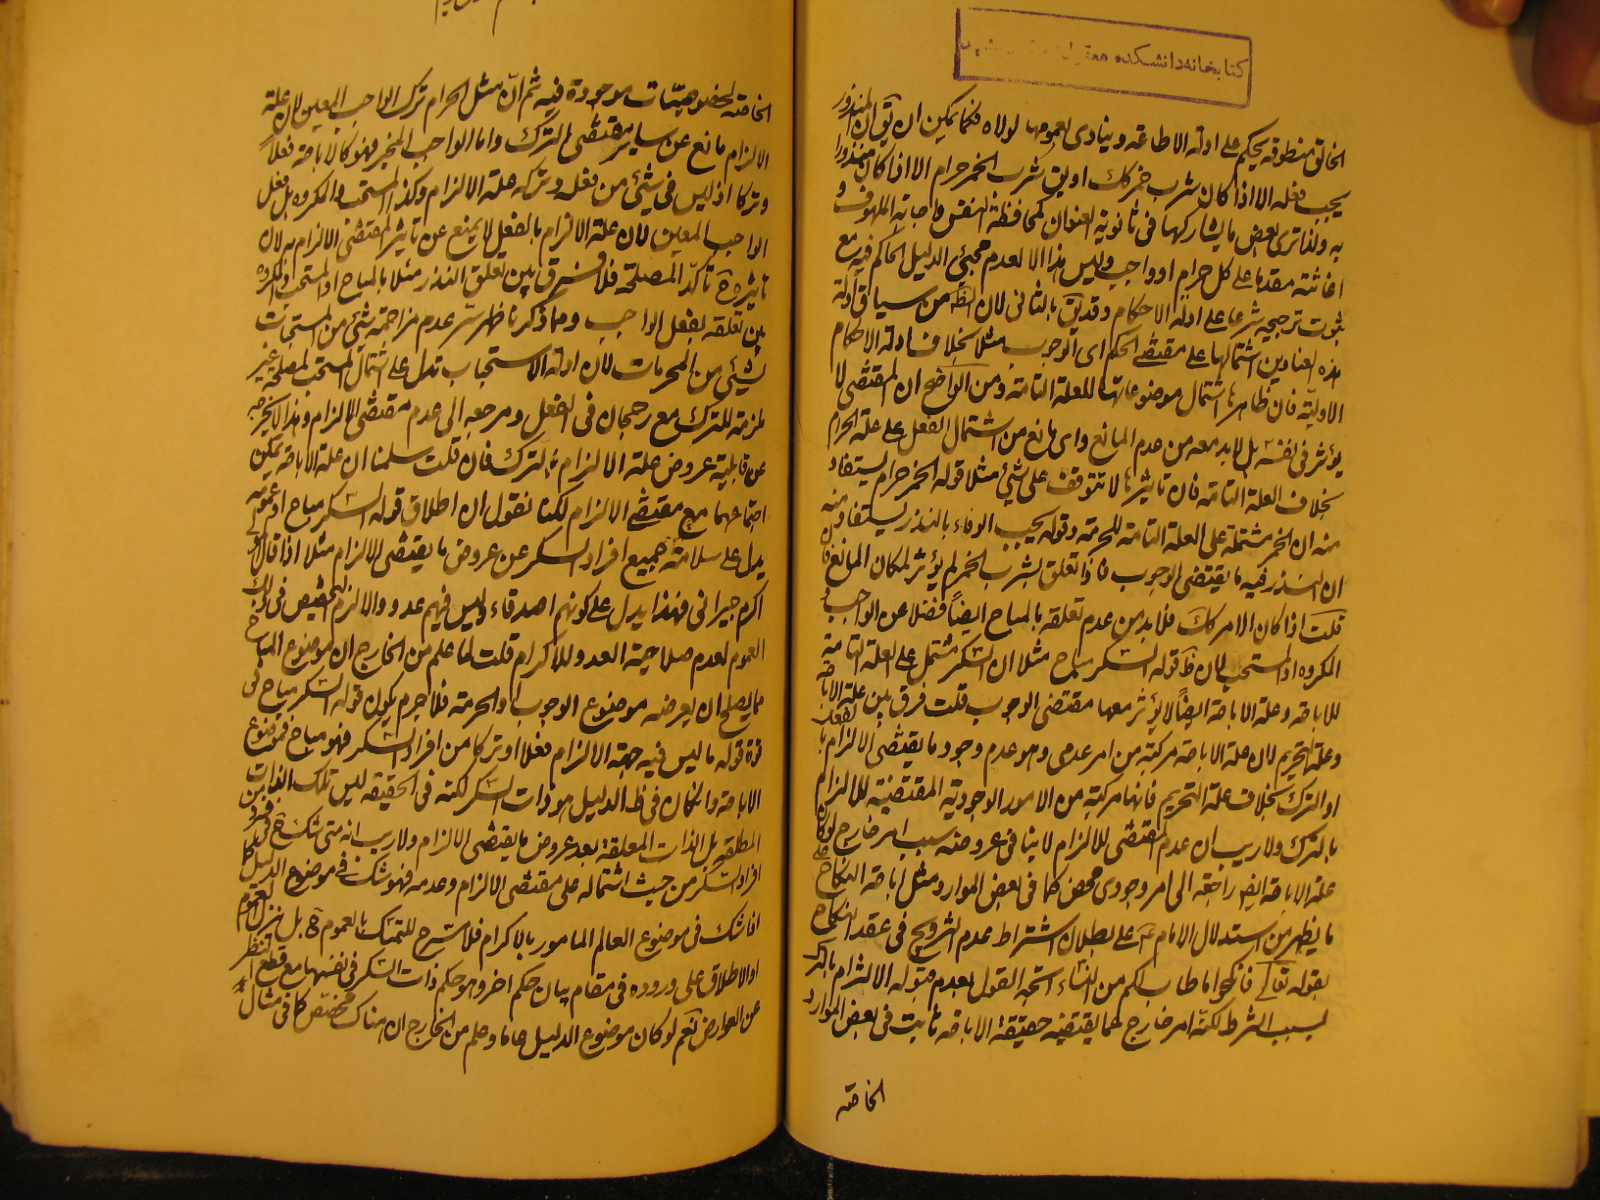 كتابخانه دانشكده
الخالق منطوقه يحكم على ادلة الاطاعة وينادى بعمومها لولاه فكما يمكن ان يق ان المنذور
يجب فعله الا اذا كان شرب خمر كك او يق شرب الخمر حرام الا اذا كان منذورا
به ولذا ترى بعض ما يشاركها فى ثانوية العنوان كمحافظة النفس واجابة الملهوف و
اغاثته مقدما على كل حرام او واجب وليس هذا الا لعدم مجيئ الدليل الحاكم فيه مع
ثبوت ترجيحه شرعا على ادلة الاحكام وقد يق بالثانى لان الظ من سياق ادلة
هذه العناوين اشتمالها على مقتضى الحكم اى الوجوب مثلا بخلاف ادلة الاحكام
الاولية فان ظاهرها اشتمال موضوعاتها للعلة التامة ومن الواضح ان المقتضى لا
يؤثر فى نفسه بل لابد معه من عدم المانع واى مانع من اشتمال الفعل على علة الحرام
بخلاف العلة التامة فان تاثيرها لا تتوقف على شيئ مثلا قوله الخمر حرام يستفاد
منه ان الخمر مشتملة على العلة التامة للحرمة وقوله يجب الوفاء بالنذر يستفاد منه
ان النذر فيه ما يقتضى الوجوب فاذا تعلق بشرب الخمر لم يؤثر لمكان المانع فان
قلت اذا كان الامر كك فلابد من عدم تعلقه بالمباح ايضا فضلا عن الواجب و
المكروه او المستحب لان ظ قوله السكر مباح مثلا ان السكر مشتمل على العلة التامة
للاباحة وعلة الاباحة ايضا لا يؤثر معها مقتضى الوجوب قلت فرق بين علة الاباحة
وعلة التحريم لان علة الاباحة مركبة من امر عدمى وهو عدم وجود ما يقتضى الالزام بالفعل
او الترك بخلاف علة التحريم فانها مركبة من الامور الوجودية المقتضية للالزام
بالترك ولا ريب ان عدم المقتضى للالزام لا ينافى عروضه بسبب امر خارج لو كان
علة الاباحة ايض راجعة الى امر وجودى محض كما فى بعض الموارد مثل اباحة النكاح
ما يظهر من استدلال الامام على بطلان اشتراط عدم التزويج فى عقد النكاح
بقوله تعالى فانكحوا ما طاب لكم من النساء اتجه القول بعدم قبوله الالتزام بالترك
بسبب الشرط لكنه امر خارج عما يقتضيه حقيقة الاباحة ثابت فى بعض الموارد
الخاصه
الخاصة لخصوصيات موجودة فيه ثم ان مثل الحرام ترك الواجب المعين لان علة
الالزام مانع عن ساير مقتضى الترك واما الواجب المخير فهو كالاباحة فعلا
وتركا اذ ليس فى شيئ من فعله وتركه علة الالزام وكذا المستحب والمكروه بل فعل
الواجب المعين لان علة الالزام بالفعل لا يمنع عن تاثير المقتضى الالزام به لان
تاثيره ح تاكد المصلحة فلا فرق بين تعلق النذر مثلا بالمباح او المستحب او المكروه
بين تعلقه بفعل الواجب ومما ذكرنا ظهر سر عدم مزاحمة شيئ من المستحبات
لشيئ من المحرمات لان ادلة الاستحباب تدل على اشتمال المستحب لمصلحة غير
ملزمة للترك مع رجحان فى الفعل ومرجعه الى عدم مقتضى الالزام وهذا لا يخرجه
عن قابلية عروض علة الالزام بالترك فان قلت سلمنا ان علة الاباحة يمكن
اجتماعهما مع مقتضى الالزام لكنا نقول ان اطلاق قوله السكر مباح او عمومه
يدل على سلامة جميع افراد السكر عن عروض ما يقتضى الالزام مثلا اذا قال
اكرم جيرانى فهذا يدل على كونهم اصدقاء وليس فيهم عدو والالزم التخصيص فى ذلك
العموم لعدم صلاحية العدو للاكرام قلت لما علم من الخارج ان موضوع المباح
مما يصلح ان يعرضه موضوع الوجوب او الحرمة فلا جرم يكون قوله السكر مباح فى
قوة قوله ما ليس فيه جهة الالزام فعلا او تركا من افراد السكر فهو مباح فموضوع
الاباحة وان كان فى ظ الدليل هو ذات السكر لكنه فى الحقيقة ليس تلك الذات
المطلقة بل الذات المعلقة بعد عروض ما يقتضى الالزام ولا ريب انه متى شك ح فى فرد من
افراد السكر من حيث اشتماله على مقتضى الالزام وعدمه فهو شك فى موضوع الدليل كما
اذا شك فى موضوع العالم المامور بالاكرام فلا سرح للتمسك بالعموم ح بل ينزل العموم
او الاطلاق على وروده فى مقام بيان حكم اخر وهو حكم ذات السكر فى نفسها مع قطع النظر
عن العوارض نعم لو كان موضوع الدليل عاما وعلم من الخارج ان هناك مخصص كما فى مثال